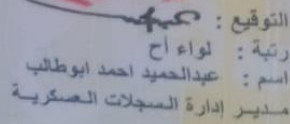 التوقيع :
رتبة : لواء أح
اسم : عبدالحميد احمد ابوطالب
مدير إدارة السجلات العسكرية